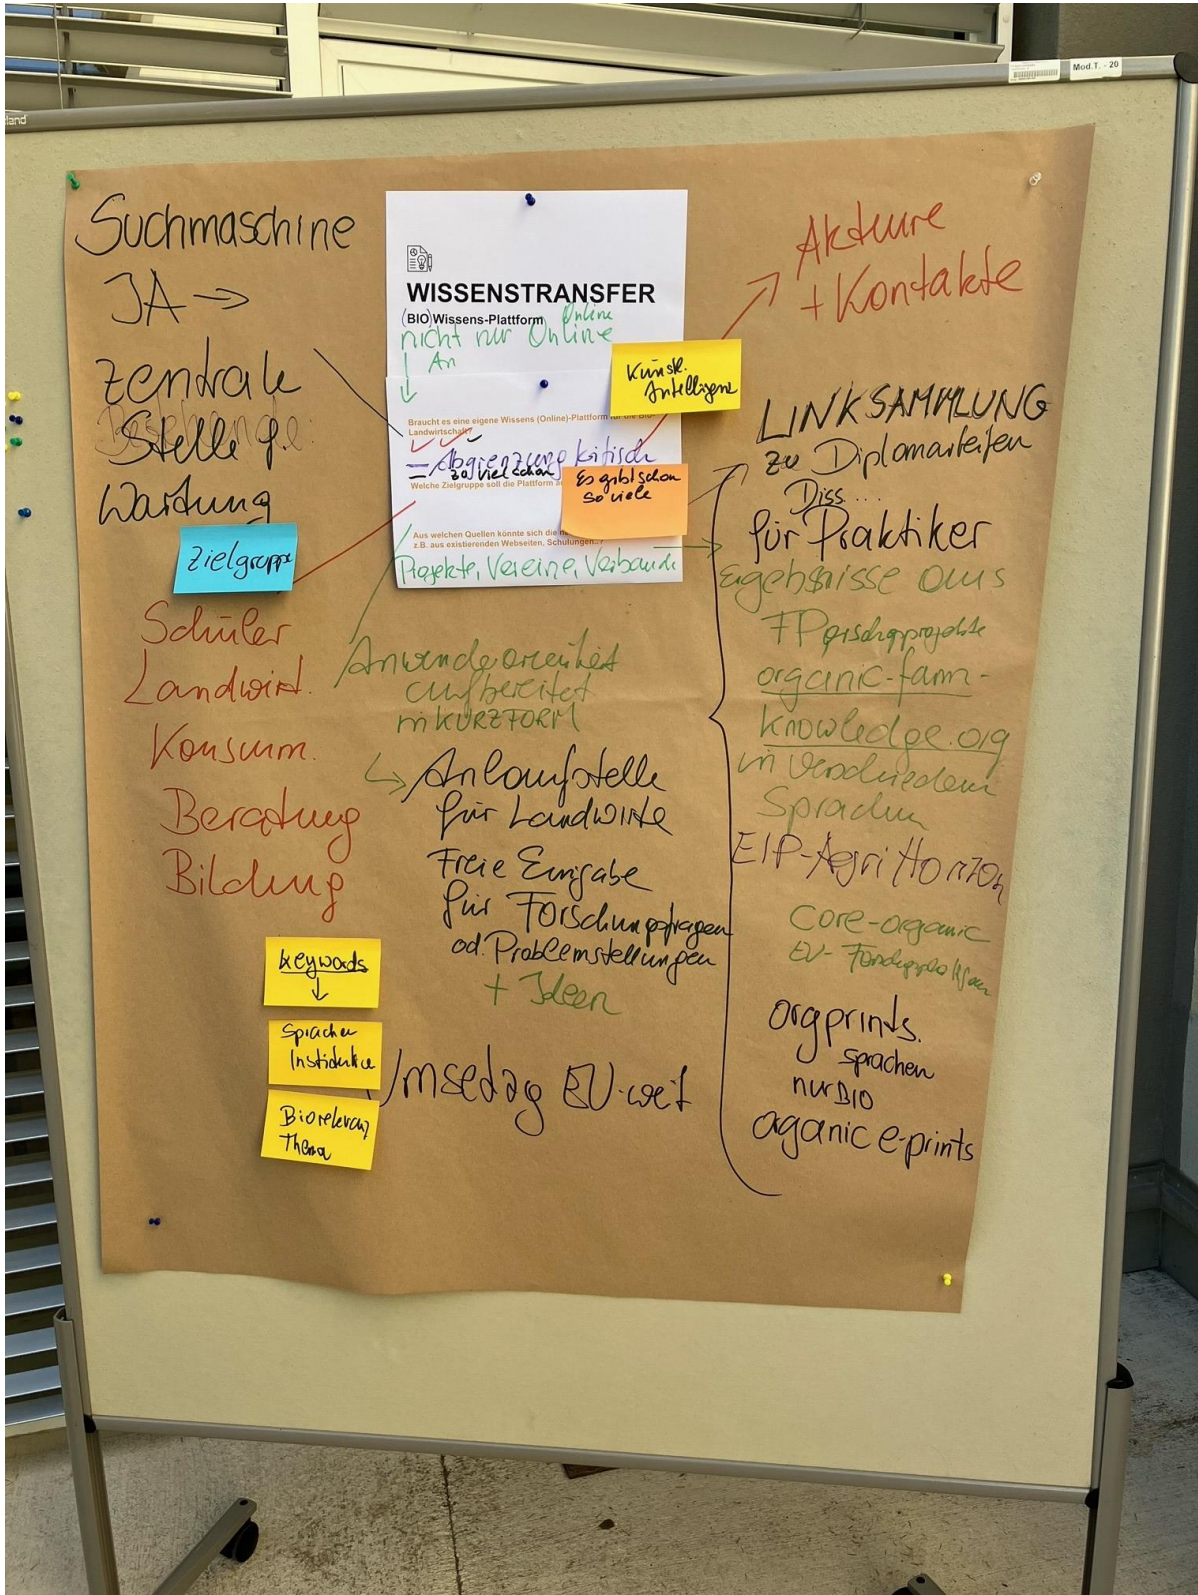 Mod.T. - 20
Suchmaschine
JA →
zentrale
Stelle f.
Wartung
Zielgruppe
Schüler
Landwirt.
Konsum.
Beratung
Bildung
keywords
↓
Sprachen
Biorelevanz
Thema
WISSENSTRANSFER
(BIO)Wissens-Plattform
Online
nicht nur Online
An
Künstl.
Intelligenz
Braucht es eine eigene Wissens (Online)-Plattform für die Bio-
Landwirtschaft?
= Abgrenzung kritisch
zu viel schon
Es gibt schon
so viele
Welche Zielgruppe soll die Plattform
Aus welchen Quellen könnte sich die
z.B. aus existierenden Webseiten, Schulungen..?
Projekte, Vereine, Verbände
aufbereitet
in KURZFORM
Anlaufstelle
für Landwirte
Freie Eingabe
für Forschungsfragen
od. Problemstellungen
+ Ideen
EU-weit
Akteure
+ Kontakte
LINKSAMMLUNG
zu Diplomarbeiten
Diss....
für Praktiker
Ergebnisse aus
organic-farm-
knowledge.org
in verschieden
Sprachen
EIP-Agri Horizon
Core-organic
orgprints.
sprachen
nur BIO
organic e-prints